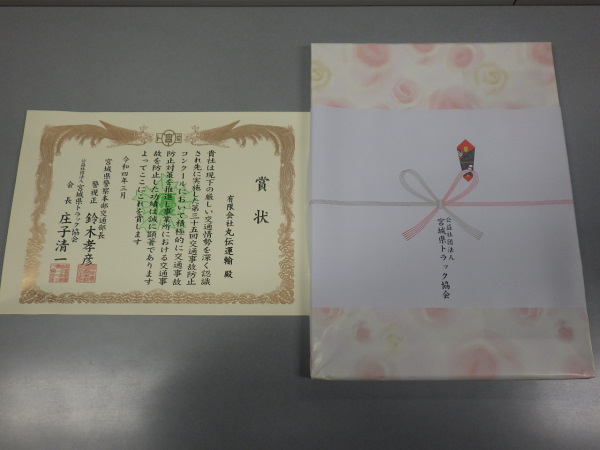 賞状
有限会社丸伝運輸 殿
貴社は現下の厳しい交通情勢を深く認識
され先に実施した第三十五回交通事故防止
コンクールにおいて積極的に交通事故
防止対策を推進し事業所における交通事
故を防止した功績は誠に顕著であります
よってここにこれを賞します
令和四年三月
宮城県警察本部交通部長
警視正 鈴木孝彦
公益社団法人宮城県トラック協会
会長 庄子清一
公益社団法人
宮城県トラック協会